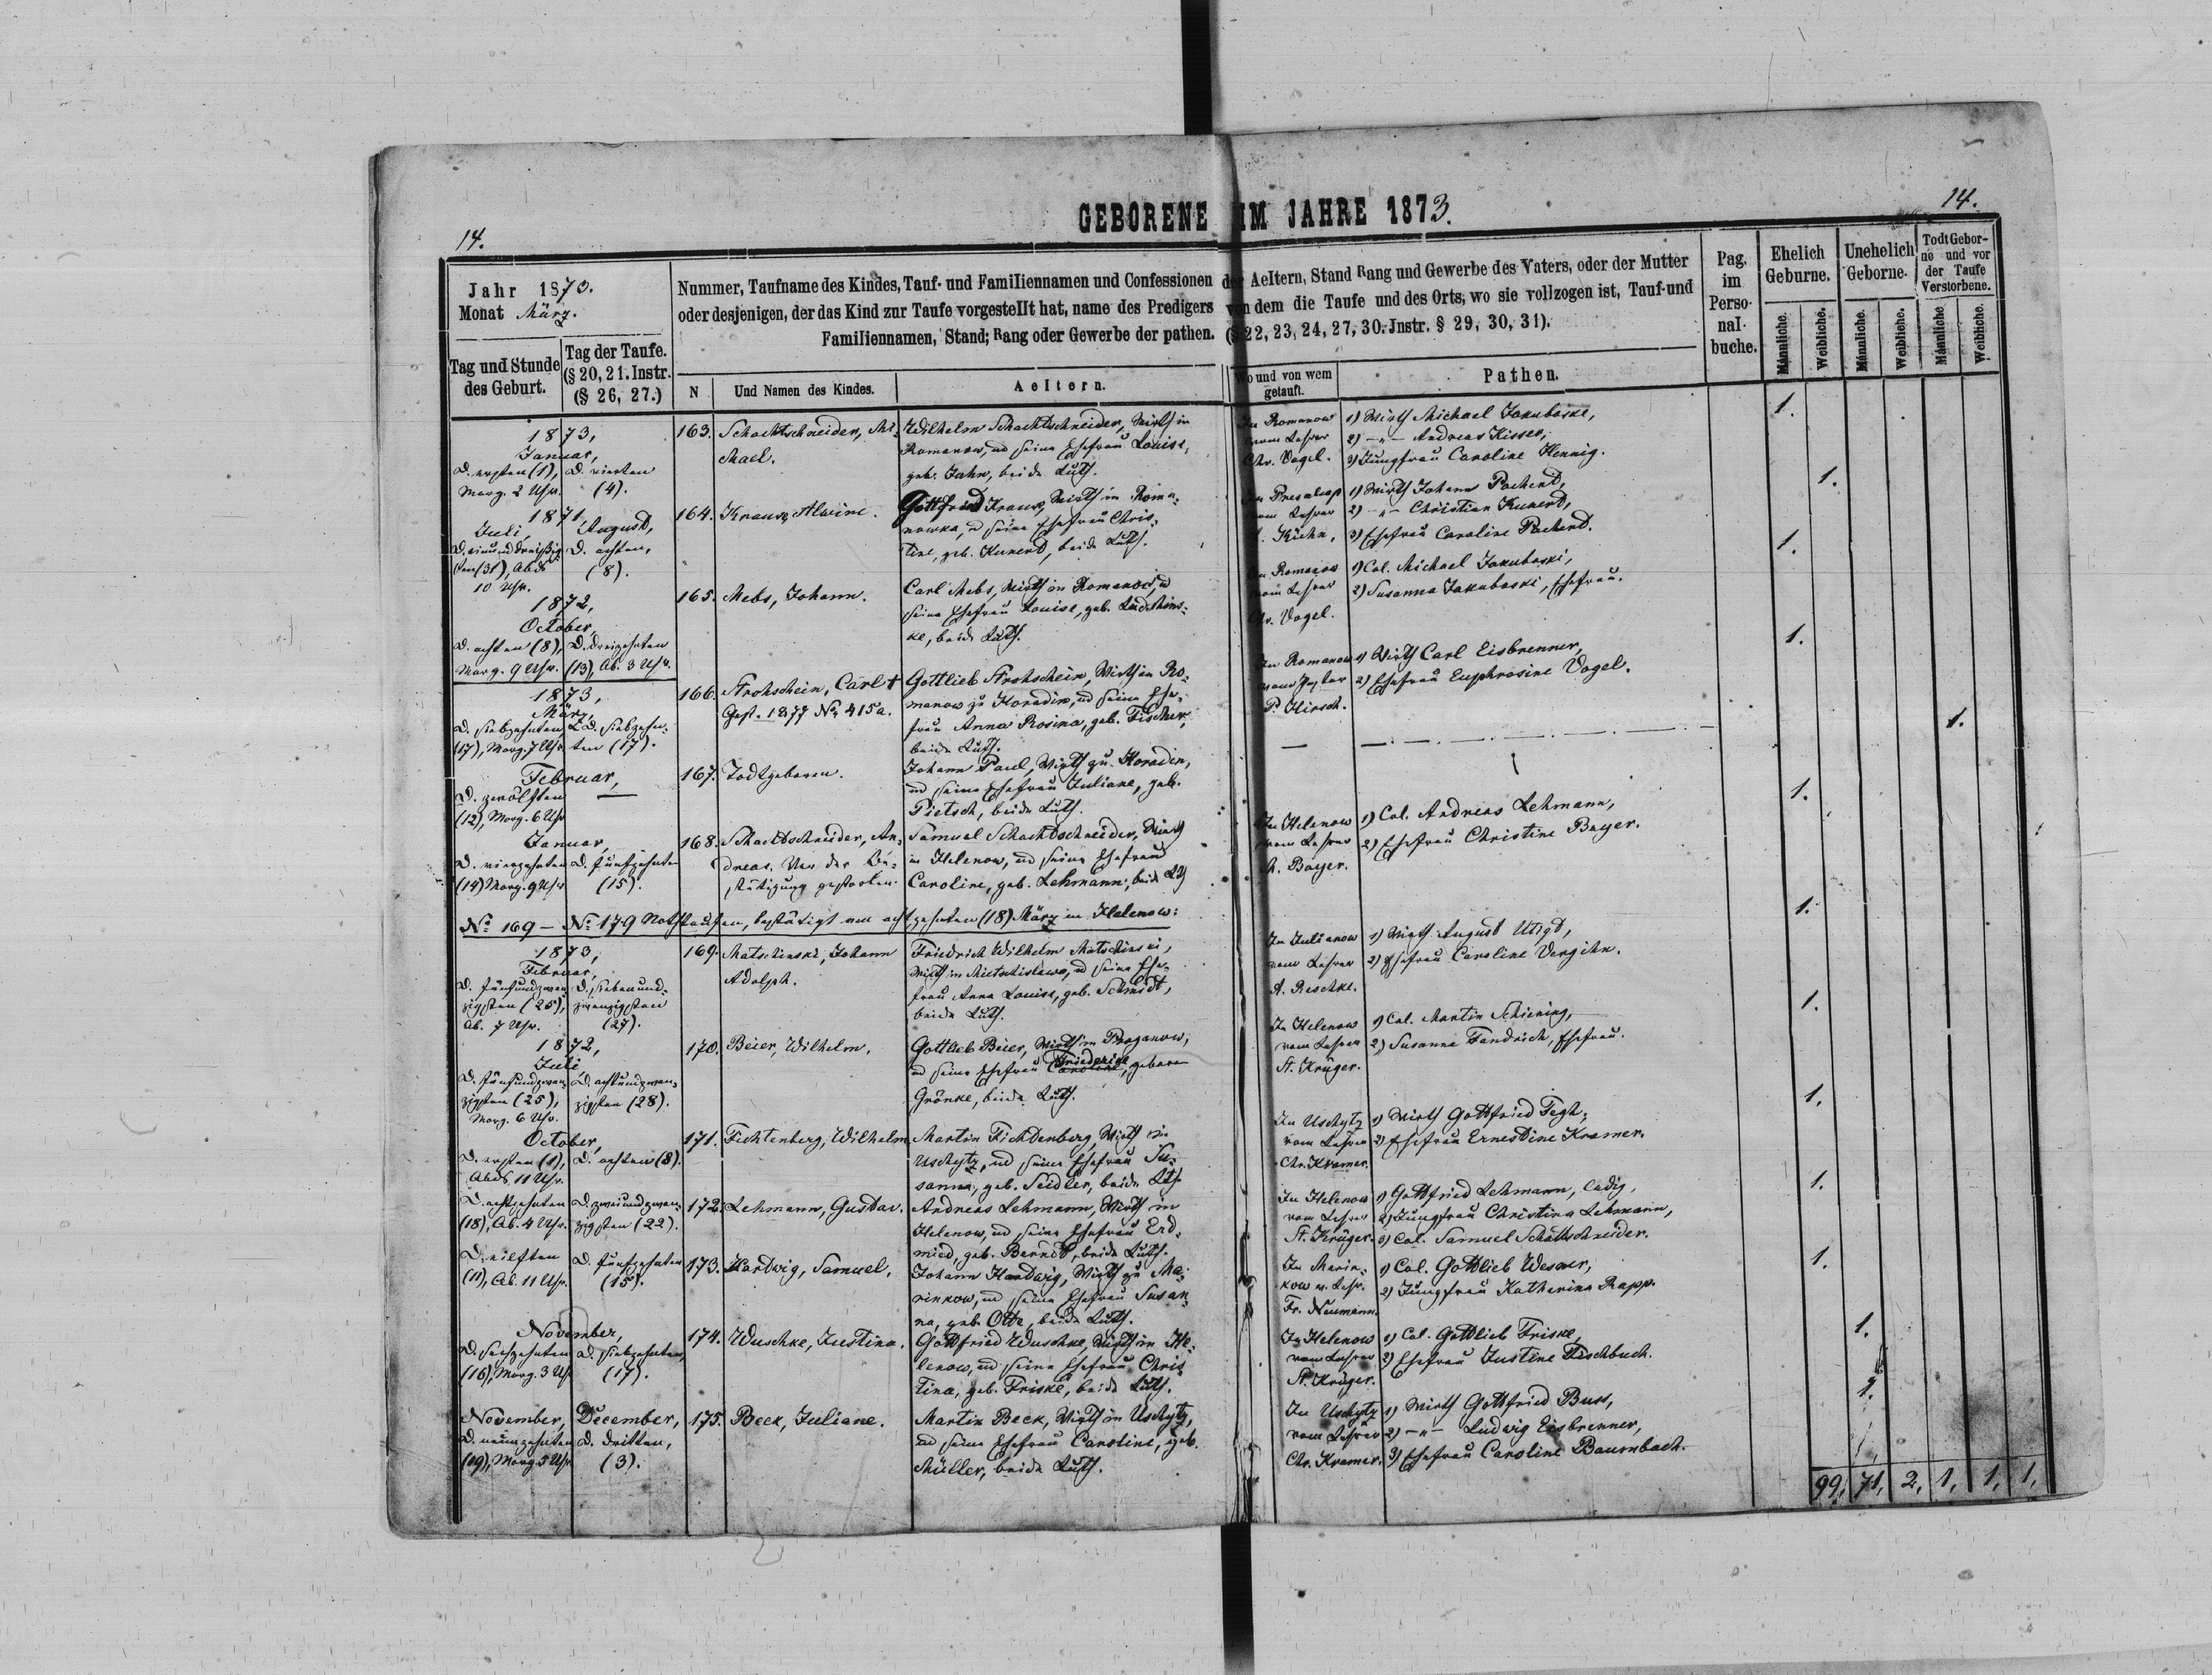 GEBORENE IM JAHRE 1873.
14.
14.
Jahr 1873.
Monat März.
Tag und Stunde des Geburt.
Tag der Taufe.
(§ 20, 21. Instr.
(§ 26, 27.)
Nummer, Taufname des Kindes, Tauf- und Familiennamen und Confessionen der Aeltern, Stand Rang und Gewerbe des Vaters, oder der Mutter
oder desjenigen, der das Kind zur Taufe vorgestellt hat, name des Predigers von dem die Taufe und des Orts, wo sie vollzogen ist, Tauf-und
Familiennamen, Stand; Rang oder Gewerbe der pathen. (§ 22, 23, 24, 27, 30. Jnstr. § 29, 30, 31).
N
Und Namen des Kindes.
Aeltern.
Wo und von wem
getauft.
Pathen.
Pag.
im
Perso-
nal-
buche.
Ehelich
Geburne.
Unehelich
Geborne.
Todt Gebor-
ne und vor
der Taufe
Verstorbene.
Männliche.
Weibliche.
Männliche.
Weibliche.
Männliche
Weibliche.
1873,
Januar,
D. ersten (1), D. vierten
Morg. 2 Uhr. (4).
163. Schachtschneider, Mi-
chael.
Wilhelm Schachtschneider, Wirth in
Romanow, und seine Ehefrau Louise,
geb. Jahn, beide Luth.
In Romanow
vom Lehrer
Chr. Vogel.
1) Wirth Michael Jakuboske,
2) -"- Andreas Kisser,
3) Jungfrau Caroline Hennig.
1.
1871,
Juli, August,
D. einunddreißig D. achten,
sten (31), Abds (8).
10 Uhr.
164. Kraus, Alwine.
Gottfried Kraus, Wirth in Roma-
nowka, und seine Ehefrau Chris-
tine, geb. Kunerd, beide Luth.
vom Lehrer
Kühn,
1) Wirth Johann Pachend,
2) -"- Christian Kunerd,
3) Ehefrau Caroline Pachend.
1.
1872,
October,
D. achten (8), D. dreizehnten
Morg. 9 Uhr. (13), Ab. 3 Uhr.
165. Mebs, Johann.
Carl Mebs, Wirth in Romanow, und
seine Ehefrau Louise, geb.
ke, beide Luth.
In Romanow
vom Lehrer
Chr. Vogel.
1) Col. Michael Jakuboski,
2) Susanna Jakuboski, Ehefrau.
1.
1873,
März,
D. siebzehnten D. siebzehn-
(17), Morg. 7 Uhr ten (17).
166. Strohschein, Carl †
Gest. 1877 No 415a.
Gottlieb Strohschein, Wirth in Ro-
manow zu Horodin, und seine Ehe-
frau Anna Rosina, geb. Fischer,
beide Luth.
In Romanow
vom Pastor
P. Hirsch.
1) Wirth Carl Eisbrenner,
2) Ehefrau Euphrosine Vogel.
1.
Februar,
D. zwölften —
(12), Morg. 6 Uhr
167. Todtgeboren.
Johann Paul, Wirth zu Horodin,
und seine Ehefrau Juliane, geb.
Pietsch, beide Luth.
1.
Januar,
D. vierzehnten D. fünfzehnten
(14) Morg. 9 Uhr (15).
168. Schachtschneider, An-
dreas. Vor der Be-
stätigung gestorben.
Samuel Schachtschneider, Wirth
in Helenow, und seine Ehefrau
Caroline, geb. Lehmann, beide Luth
In Helenow
vom Lehrer
A. Bayer.
1) Col. Andreas Lehmann,
2) Ehefrau Christine Bayer.
1.
No 169 — No 179 Nothtaufen, bestätigt am achtzehnten (18) März in Helenow:
1873,
Februar,
D. fünfundzwan- D. siebenund-
zigsten (25), zwanzigsten
Ab. 7 Uhr. (27).
169. Matschinski, Johann
Adolph.
Friedrich Wilhelm Matschinski,
Wirth in Mietschislawo, und seine Ehe-
frau Anna Louise, geb. Schmidt,
beide Luth.
In Julianow
vom Lehrer
A. Reschke.
1) Wirth August Uttgd,
2) Ehefrau Caroline Vergihn.
1.
1872,
Juli,
D. fünfundzwan- D. achtundzwan-
zigsten (25), zigsten (28).
Morg. 6 Uhr.
170. Beier, Wilhelm.
Gottlieb Beier, Wirth in Boganow,
Friederike
und seine Ehefrau Caroline, geboren
Grönke, beide Luth.
In Helenow
vom Lehrer
St. Krüger.
1) Col. Martin Schiening,
2) Susanna Fandrich, Ehefrau.
1.
October,
D. ersten (1), D. achten (8).
Abds. 11 Uhr.
171. Fichtenberg, Wilhelm
Martin Fichdenberg, Wirth in
Uschytz, und seine Ehefrau Su-
sanna, geb. Seidler, beide Luth
In Uschytz
vom Lehrer
Chr. Kramer.
1) Wirth Gottfried Fegh,
2) Ehefrau Ernestine Kramer.
1.
D. achtzehnten D. zweiundzwan-
(18), Ab. 4 Uhr. zigsten (22).
172. Lehmann, Gustav.
Andreas Lehmann, Wirth in
Helenow, und seine Ehefrau Erd-
mied, geb. Berndt, beide Luth.
In Helenow
vom Lehrer
St. Krüger.
1) Gottfried Lehmann, ledig,
2) Jungfrau Christina Lehmann,
3) Col. Samuel Schattschneider.
1.
D. eilften D. fünfzehnten
(11), Ab. 11 Uhr. (15).
173. Hardwig, Samuel.
Johann Hardwig, Wirth zu Ma-
rinkow, und seine Ehefrau Susan-
na, geb. Otte, beide Luth.
In Marin-
kow v. Lehr.
Fr. Neumann.
1) Col. Gottlieb Wesner,
2) Jungfrau Katharina Rapp.
1.
November,
D. sechzehnten D. siebzehnten,
(16), Morg. 3 Uhr (17).
174. Wuschke, Justina.
Gottfried Wuschke, Wirth in He-
lenow, und seine Ehefrau Chris-
tina, geb. Friske, beide Luth.
In Helenow
vom Lehrer
St. Krüger.
1) Col. Gottlieb Friske,
2) Ehefrau Justine Fischbuch.
1.
November, December,
D. neunzehnten D. dritten,
(19), Morg. 5 Uhr (3).
175. Beek, Juliane.
Martin Beck, Wirth in Uschytz,
und seine Ehefrau Caroline, geb.
Müller, beide Luth.
In Uschytz
vom Lehrer
Chr. Kramer.
1) Wirth Gottfried Buss,
2) -"- Ludwig Eisbrenner,
3) Ehefrau Caroline Baumbach.
1.
99, 71, 2, 1, 1, 1,